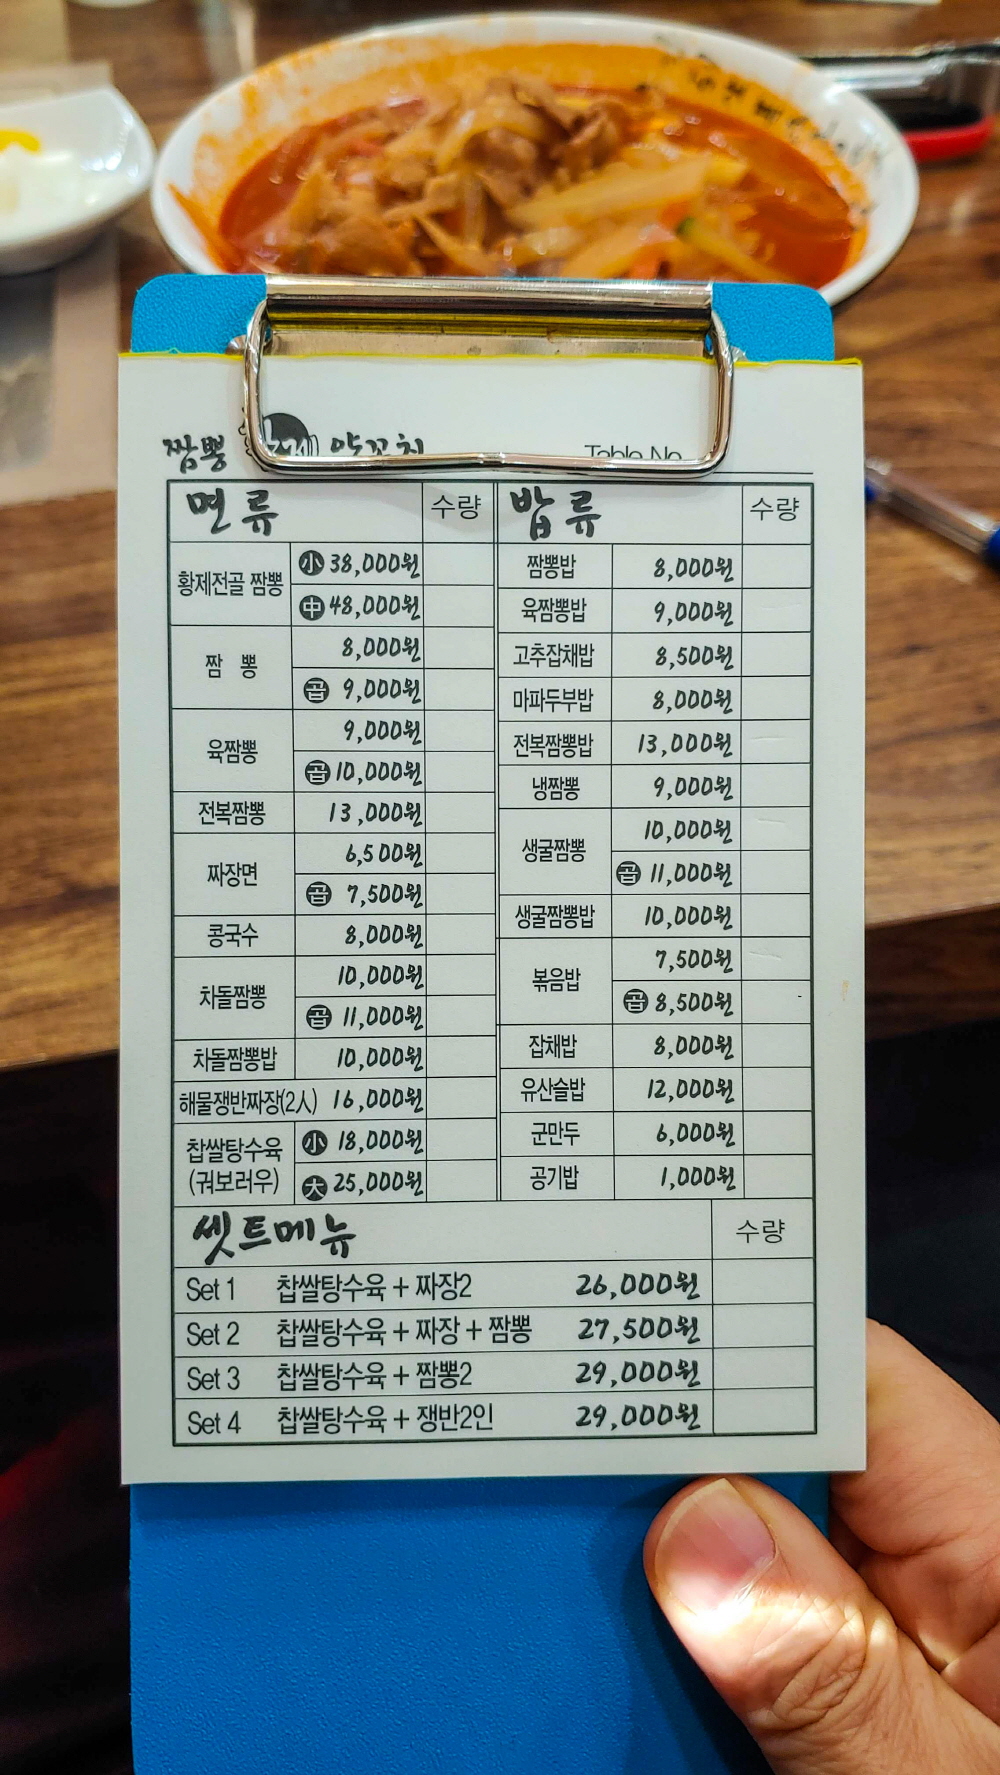 짬뽕 양꼬치
Table No
면류 수량
황제전골 짬뽕 小 38,000원
中 48,000원
짬 뽕 8,000원
곱 9,000원
육짬뽕 9,000원
곱 10,000원
전복짬뽕 13,000원
짜장면 6,500원
곱 7,500원
콩국수 8,000원
차돌짬뽕 10,000원
곱 11,000원
차돌짬뽕밥 10,000원
해물쟁반짜장(2人) 16,000원
찹쌀탕수육 小 18,000원
(궈보러우) 大 25,000원
밥류 수량
짬뽕밥 8,000원
육짬뽕밥 9,000원
고추잡채밥 8,500원
마파두부밥 8,000원
전복짬뽕밥 13,000원
냉짬뽕 9,000원
생굴짬뽕 10,000원
곱 11,000원
생굴짬뽕밥 10,000원
볶음밥 7,500원
곱 8,500원
잡채밥 8,000원
유산슬밥 12,000원
군만두 6,000원
공기밥 1,000원
셋트메뉴 수량
Set 1 찹쌀탕수육 + 짜장2 26,000원
Set 2 찹쌀탕수육 + 짜장 + 짬뽕 27,500원
Set 3 찹쌀탕수육 + 짬뽕2 29,000원
Set 4 찹쌀탕수육 + 쟁반2인 29,000원